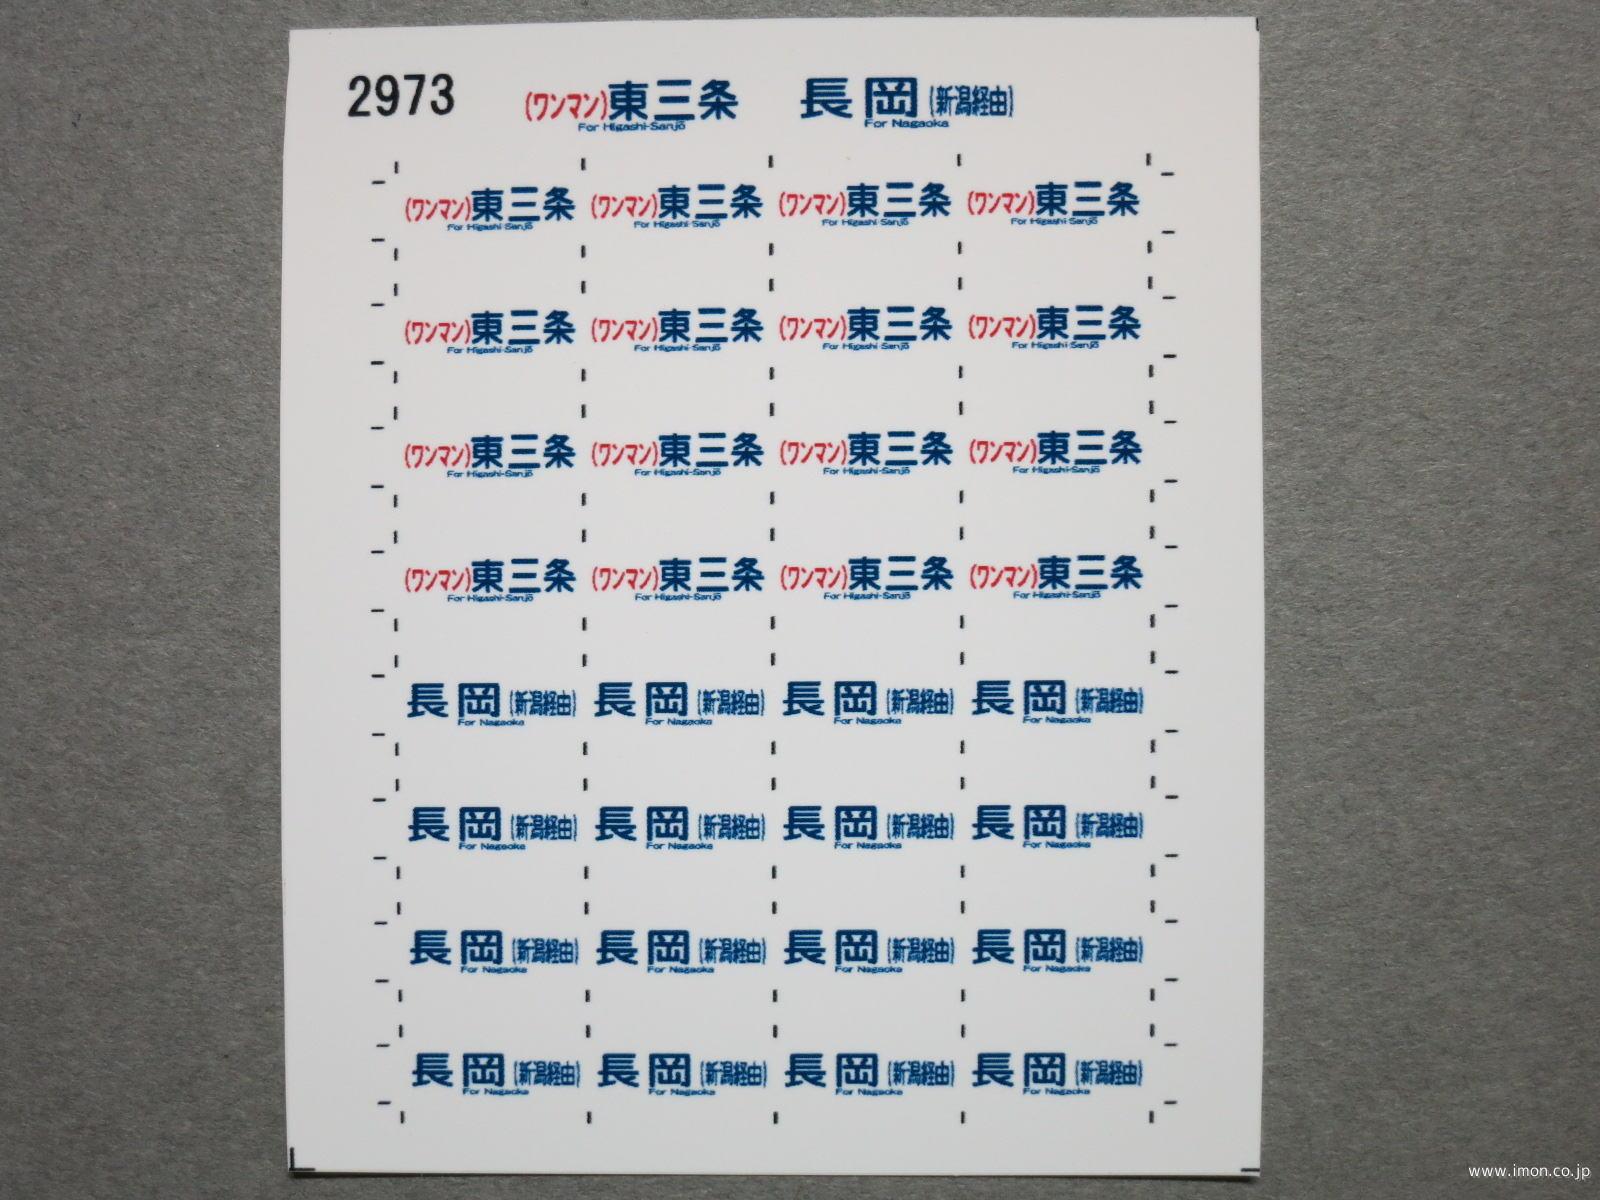 2973 (ワンマン)東三条 長岡(新潟経由)
For Higashi-Sanjō For Nagaoka
(ワンマン)東三条 (ワンマン)東三条 (ワンマン)東三条 (ワンマン)東三条
For Higashi-Sanjō For Higashi-Sanjō For Higashi-Sanjō For Higashi-Sanjō
(ワンマン)東三条 (ワンマン)東三条 (ワンマン)東三条 (ワンマン)東三条
For Higashi-Sanjō For Higashi-Sanjō For Higashi-Sanjō For Higashi-Sanjō
(ワンマン)東三条 (ワンマン)東三条 (ワンマン)東三条 (ワンマン)東三条
For Higashi-Sanjō For Higashi-Sanjō For Higashi-Sanjō For Higashi-Sanjō
(ワンマン)東三条 (ワンマン)東三条 (ワンマン)東三条 (ワンマン)東三条
For Higashi-Sanjō For Higashi-Sanjō For Higashi-Sanjō For Higashi-Sanjō
長岡(新潟経由) 長岡(新潟経由) 長岡(新潟経由) 長岡(新潟経由)
For Nagaoka For Nagaoka For Nagaoka For Nagaoka
長岡(新潟経由) 長岡(新潟経由) 長岡(新潟経由) 長岡(新潟経由)
For Nagaoka For Nagaoka For Nagaoka For Nagaoka
長岡(新潟経由) 長岡(新潟経由) 長岡(新潟経由) 長岡(新潟経由)
For Nagaoka For Nagaoka For Nagaoka For Nagaoka
長岡(新潟経由) 長岡(新潟経由) 長岡(新潟経由) 長岡(新潟経由)
For Nagaoka For Nagaoka For Nagaoka For Nagaoka
www.imon.co.jp